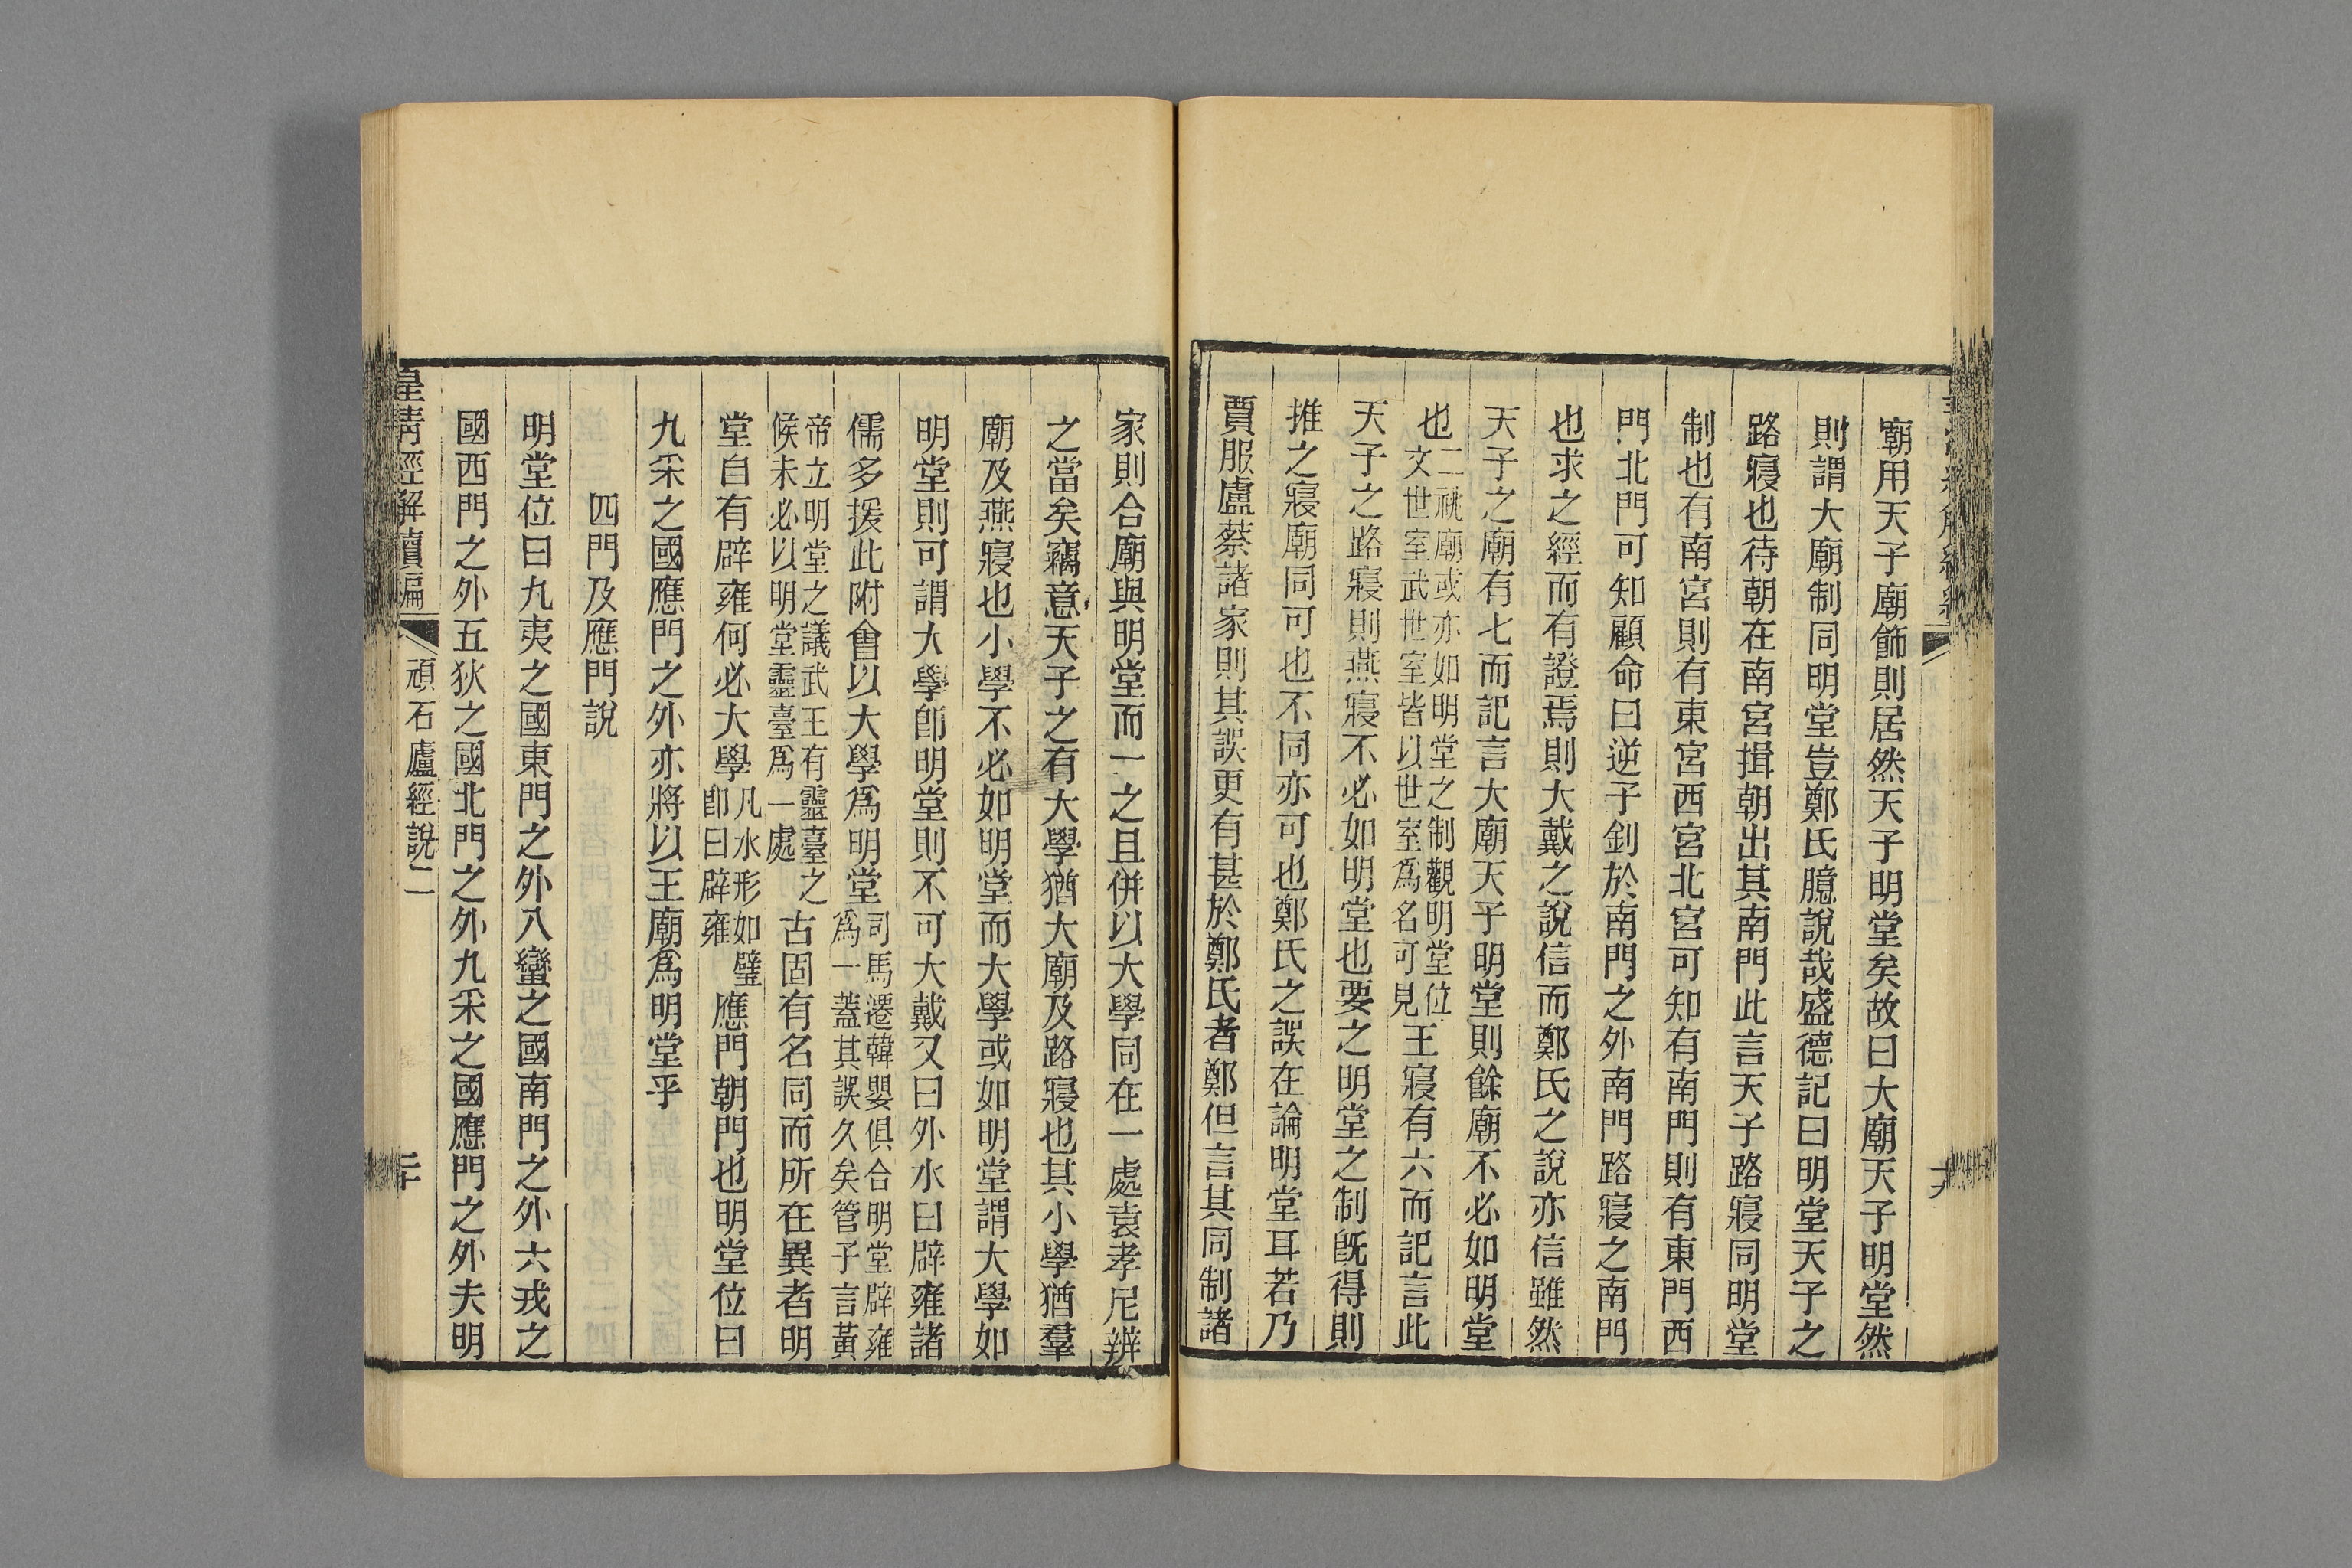 廟用天子廟飾則居然天子明堂矣故曰大廟天子明堂然
則謂大廟制同明堂豈鄭氏臆說哉盛德記曰明堂天子之
路寢也待朝在南宮揖朝出其南門此言天子路寢同明堂
制也有南宮則有東宮西宮北宮可知有南門則有東門西
門北門可知顧命曰逆子釗於南門之外南門路寢之南門
也求之經而有證焉則大戴之說信而鄭氏之說亦信雖然
天子之廟有七而記言大廟天子明堂則餘廟不必如明堂
也二祧廟或亦如明堂之制觀明堂位文世室武世室皆以世室爲名可見王寢有六而記言此
天子之路寢則燕寢不必如明堂也要之明堂之制旣得則
推之寢廟同可也不同亦可也鄭氏之誤在論明堂耳若乃
賈服盧蔡諸家則其誤更有甚於鄭氏者鄭但言其同制諸
家則合廟與明堂而一之且併以大學同在一處袁孝尼辨
之當矣竊意天子之有大學猶大廟及路寢也其小學猶羣
廟及燕寢也小學不必如明堂而大學或如明堂謂大學如
明堂則可謂大學卽明堂則不可大戴又曰外水曰辟雍諸
儒多援此附會以大學爲明堂司馬遷韓嬰俱合明堂辟雍爲一蓋其誤久矣管子言黃
帝立明堂之議武王有靈臺之候未必以明堂靈臺爲一處古固有名同而所在異者明
堂自有辟雍何必大學凡水形如璧卽曰辟雍應門朝門也明堂位曰
九采之國應門之外亦將以王廟爲明堂乎
四門及應門說
明堂位曰九夷之國東門之外八蠻之國南門之外六戎之
國西門之外五狄之國北門之外九采之國應門之外夫明
皇清經解續編
頑石廬經說二
二十